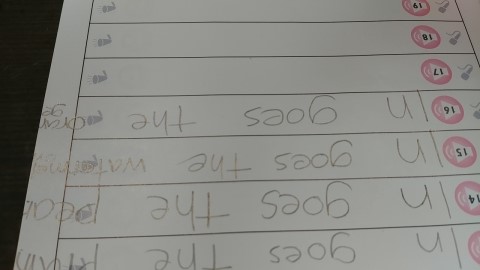 In goes the
14 In goes the pear
15 In goes the
16 In goes the oran
ge
17
18
19